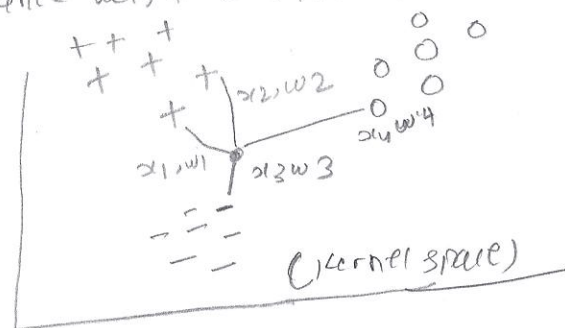 x2, w2
x4 w4
x1, w1
x3 w3
(Kernel space)